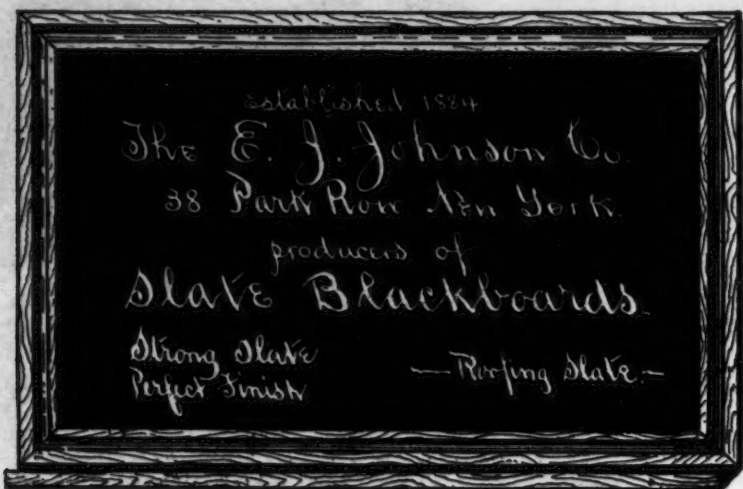 Established 1884
The E. J. Johnson Co.
38 Park Row New York.
producers of
Slate Blackboards.
Strong Slate
Perfect Finish
— Roofing Slate. —